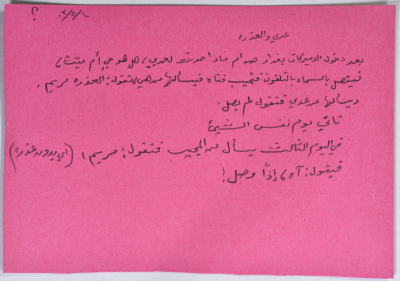 ؟
عدي والعذره
بعد دخول الامريكان بغداد صدام ماذا حدث لعدي، هل هو حي أم ميت،
فيتصل بالسماء بالتلفون فتجيب فتاة فيسألها من هي فتقول: العذره مريم.
ويسألها عن عدي فتقول لم يصل.
ثاني يوم نفس الشيئ
في اليوم الثالث يسأل من المجيب فتقول: مريم! (أي بدون عذره)
فيقول: آه، إذاً وصل!